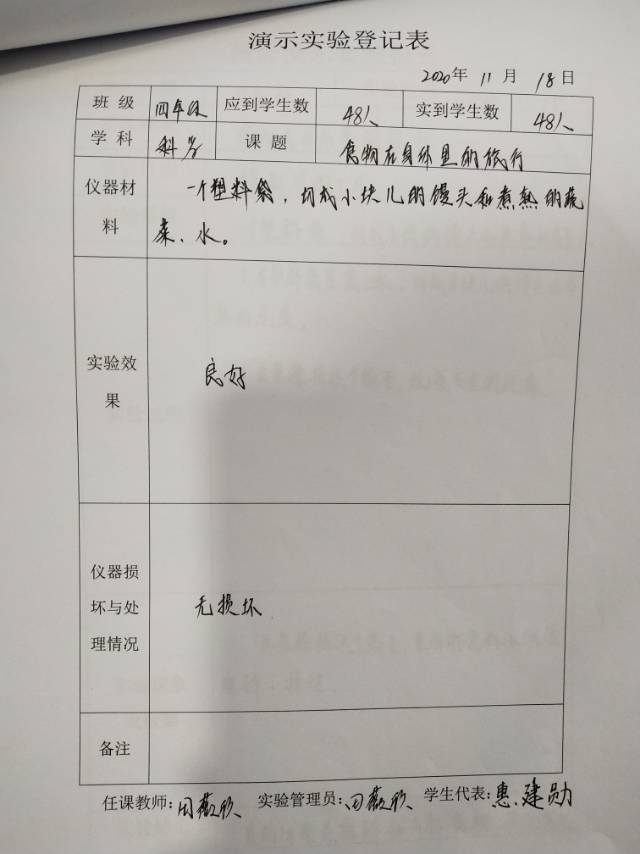 演示实验登记表
2020年 11 月 18 日
班 级 四年级 应到学生数 48人 实到学生数 48人
学 科 科学 课 题 食物在身体里的旅行
仪器材料 一个塑料袋，切成小块儿的馒头和煮熟的蔬
菜、水。
实验效
果
良好
仪器损
坏与处
理情况
无损坏
备注
任课教师: 田薇欣 实验管理员: 田薇欣 学生代表: 惠建勋